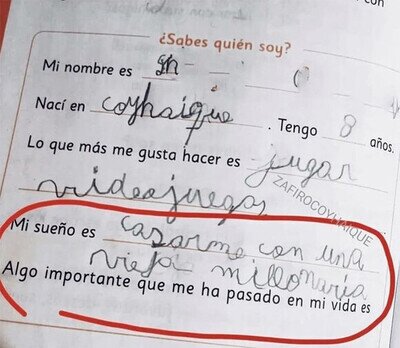 ¿Sabes quién soy?
Mi nombre es
Nací en coyhaique. Tengo 8 años.
Lo que más me gusta hacer es jugar
videojuegos
ZAFIROCOYHAIQUE
Mi sueño es casarme con una
vieja millonaria
Algo importante que me ha pasado en mi vida es